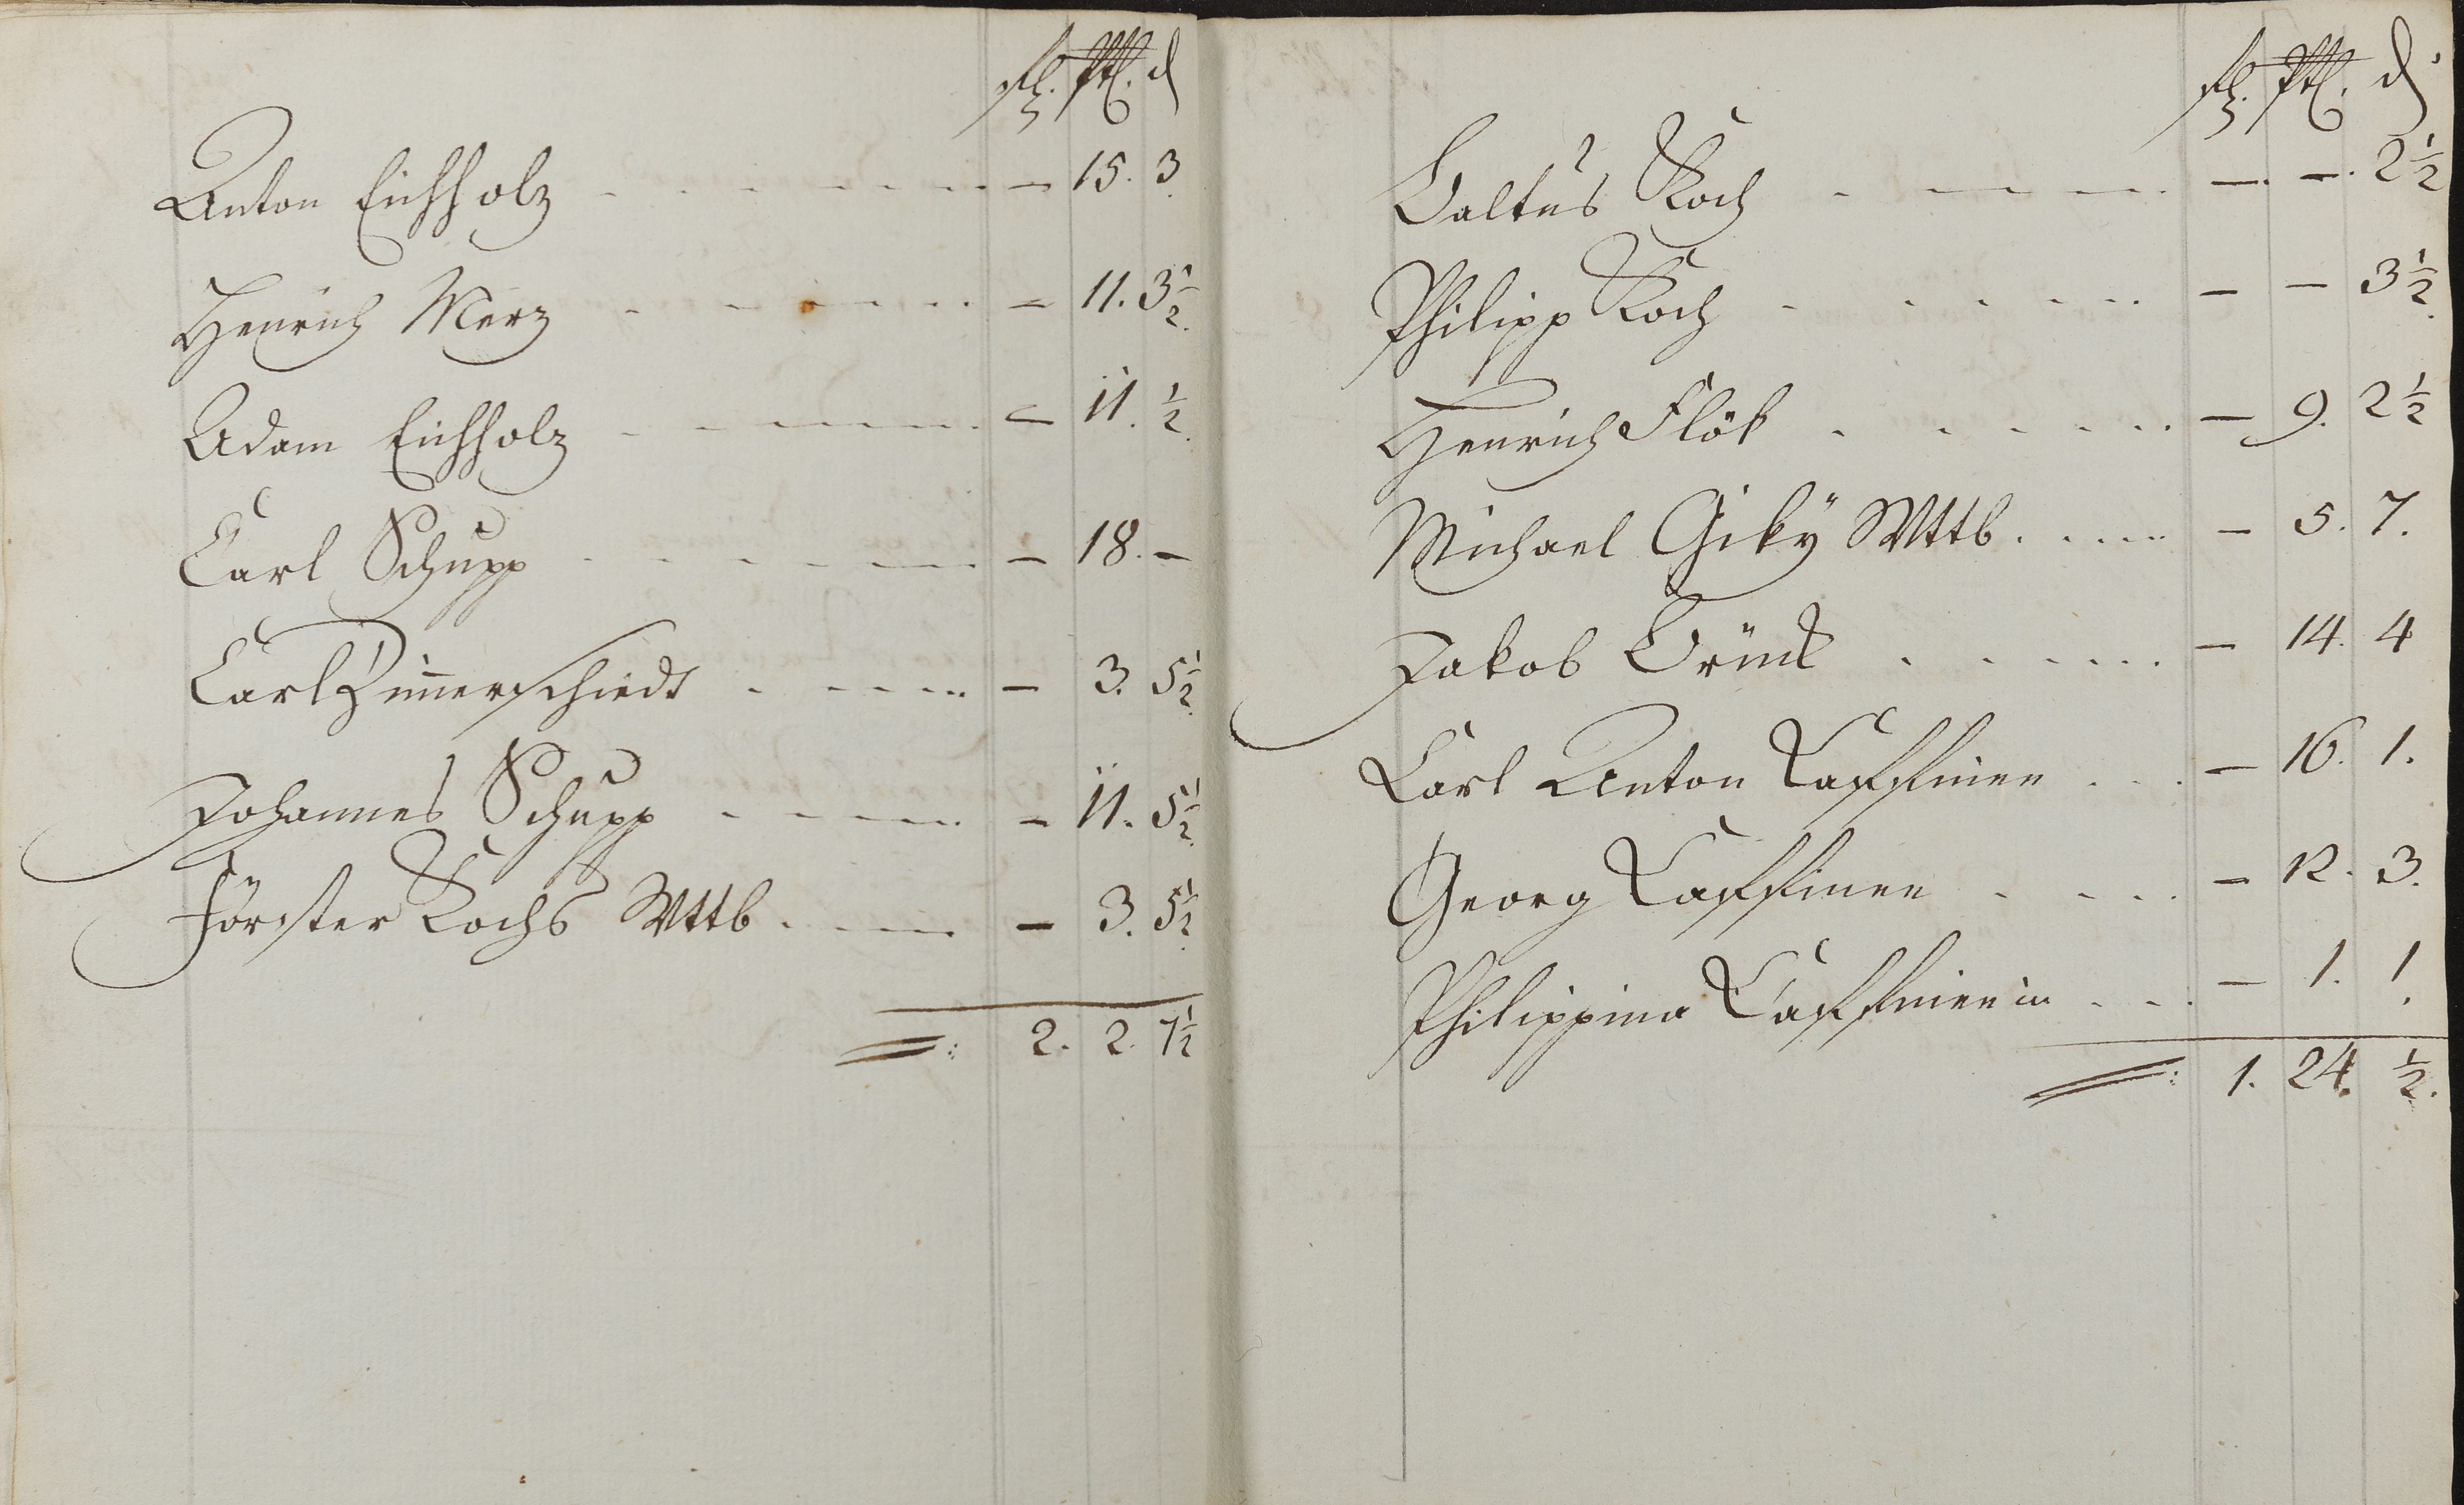 fl. Xtl. d
Anton Eichholz - - - - - - - - 15. 3
Henrich Merz - - - - - - - 11. 3½.
Adam Eichholz - - - - - - - 11. ½.
Carl Schupp - - - - - - - 18. -
Carl Zimerschiedt - - - - - - 3. 5½.
Johannes Schupp - - - - - - 11. 5½.
Förster Kochs Wttb. - - - - - 3. 5½.
2. 2. 7½
fl. Xtl. d
Baltus Koch - - - - - - -. -. 2½
Philipp Koch - - - - - - - - 3½.
Henrich Flök - - - - - - - 9. 2½
Michael Giky Wttb. - - - - - 5. 7.
Jakob Brück - - - - - - 14. 4
Carl Anton - - - - 16. 1.
Georg - - - - - 12. 3.
Philippina - - - 1. 1.
1. 24. ½.